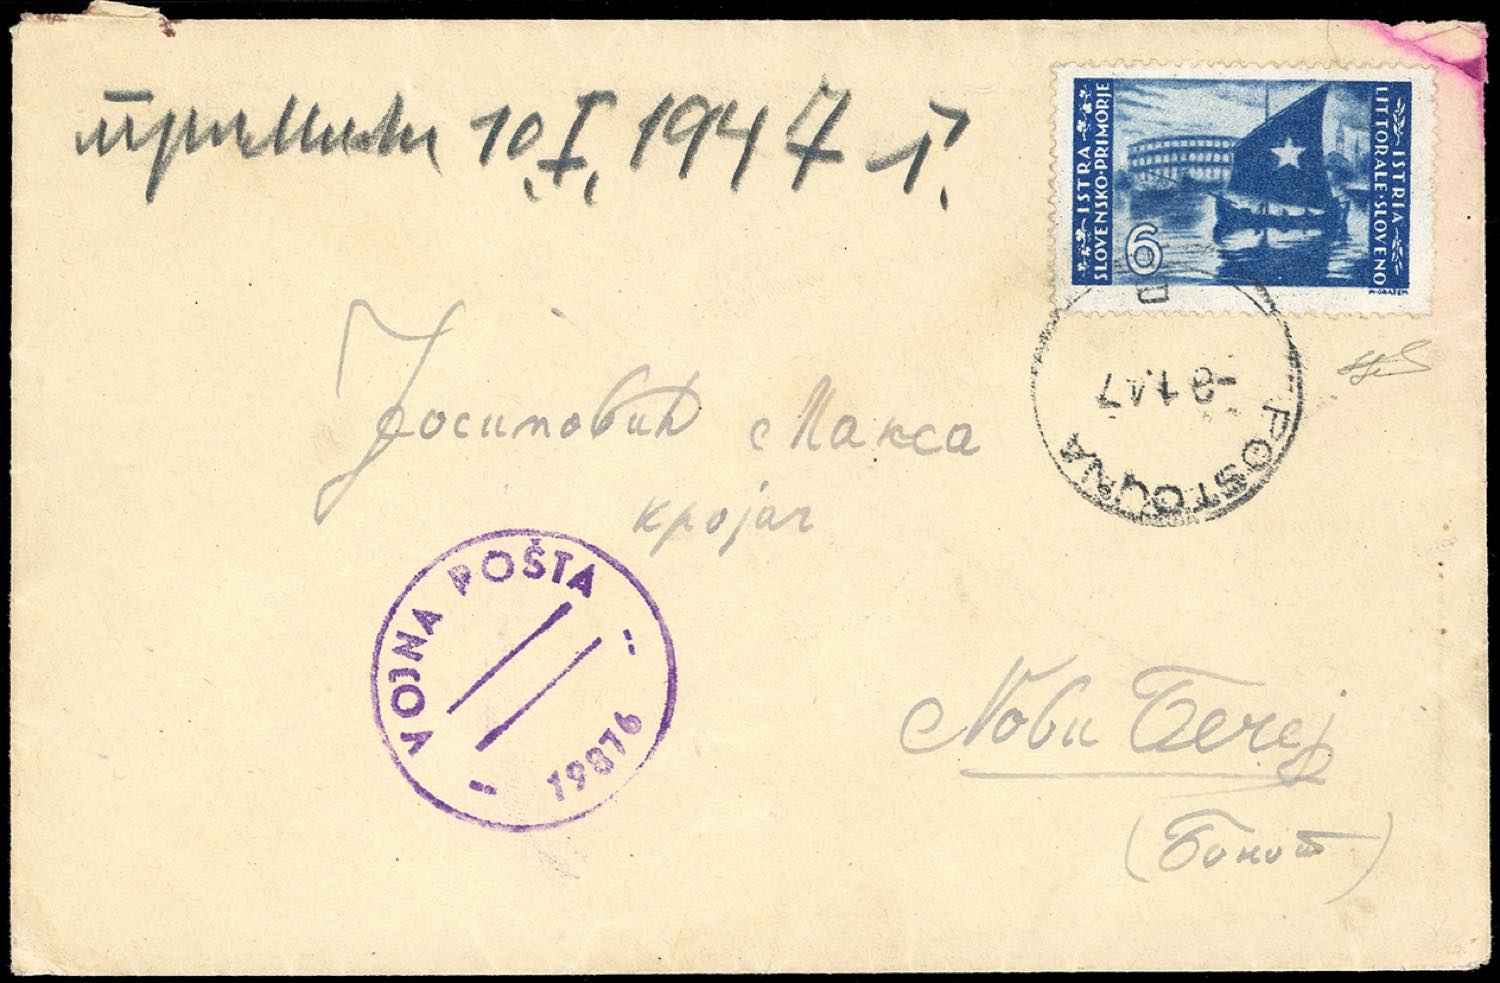 примљени 10.I.1947 г.
ISTRA
SLOVENSKO-PRIMORJE
6
ISTRIA
LITTORALE-SLOVENO
POSTOJNA
47
Јосимовић Макса
кројач
VOJNA POŠTA
19876
Нови Бечеј
(Банат)